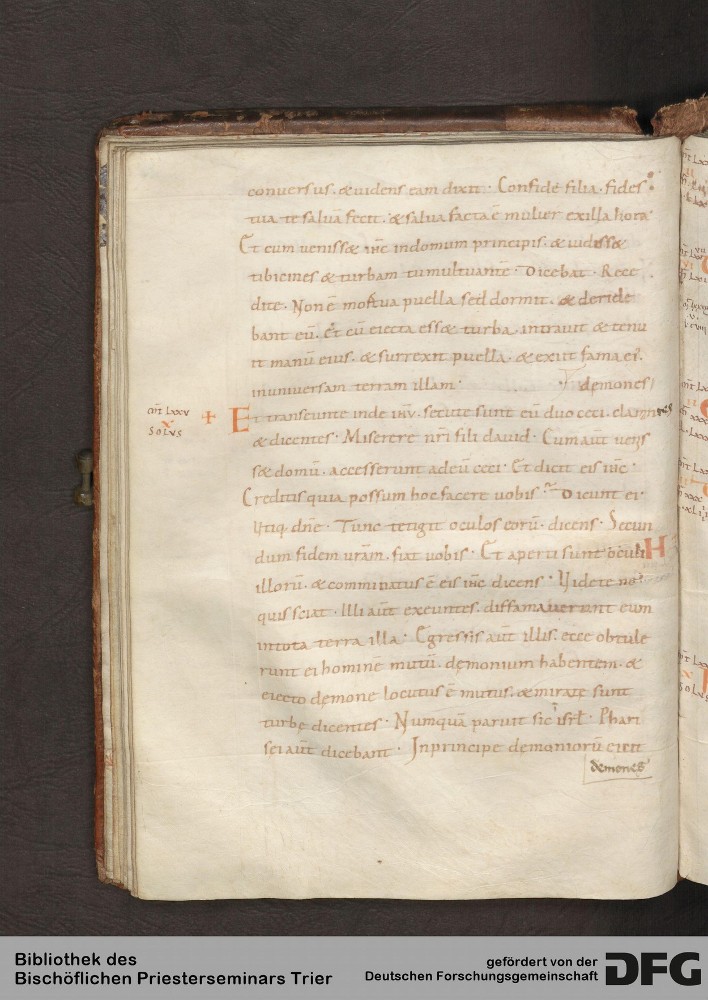 conuersus · & uidens eam dixit · Confide filia · fides
tua te saluā fecit · & salua facta ē mulier ex illa hora
Et cum uenisset ihc in domum principis · & uidisset
tibicines & turbam tumultuantē · Dicebat · Rece
dite · Non ē mortua puella sed dormit · & deride
bant eū · Et cū eiecta esset turba · intrauit & tenu
it manū eius · & surrexit puella · & exiit fama ei
in uniuersam terram illam ·
demones
mt lxxv
x
SOLVS
Et transeunte inde ihu · secuti sunt eū duo ceci · clamantes
& dicentes · Miserere nri fili dauid · Cum aūt uenis
set domū · accesserunt ad eū ceci · Et dicit eis ihc ·
Creditis quia possum hoc facere uobis · Dicunt ei ·
Utiq · dne · Tunc tetigit oculos eorū · dicens · Secun
dum fidem uram · fiat uobis · Et aperti sunt oculi
illorū · & comminatus ē eis ihc dicens · Uidete ne
quis sciat · Illi aūt exeuntes · diffamauerunt eum
in tota terra illa · Egressis aūt illis · ecce obtule
runt ei hominē mutū · demonium habentem · &
eiecto demone locutus ē mutus · & mirate sunt
turbe dicentes · Numquā paruit sic isrl · Phari
sei aūt dicebant · In principe demoniorū eicit
demones
Bibliothek des
Bischöflichen Priesterseminars Trier
gefördert von der
Deutschen Forschungsgemeinschaft
DFG